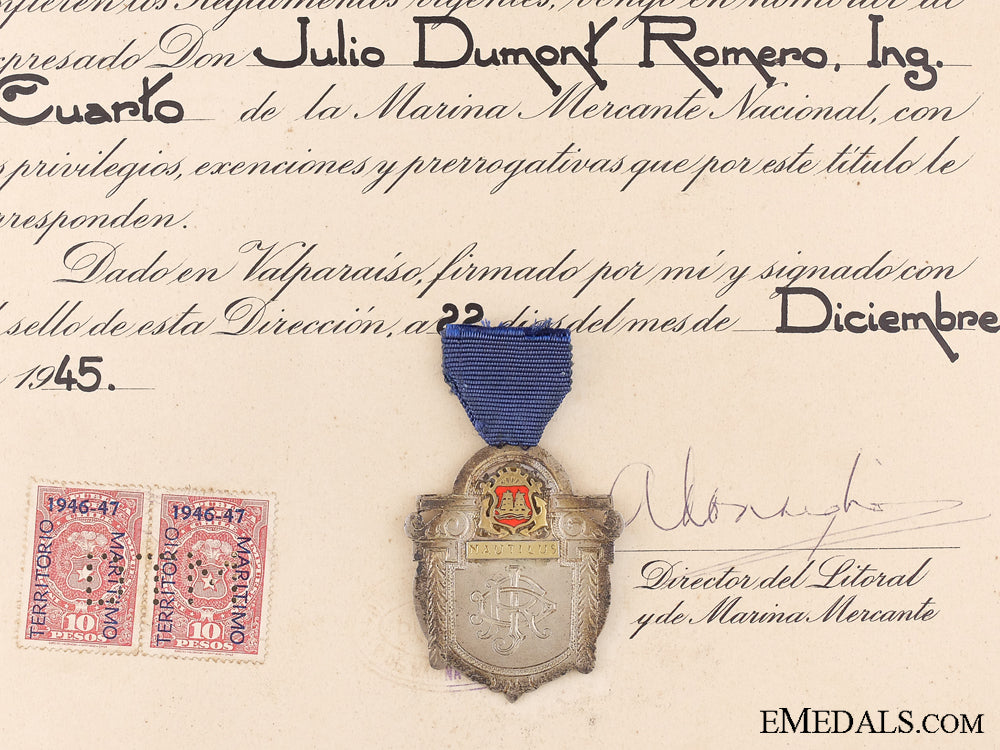 los Reglamentos vigentes, vengo en nombrar al
expresado Don Julio Dumont Romero, Ing.
Cuarto de la Marina Mercante Nacional, con
privilegios, exenciones y prerrogativas que por este título le
rresponden.
Dado en Valparaíso, firmado por mí y signado con
sello de esta Dirección, a 22 días del mes de Diciembre
1945.
1946-47
TERRITORIO
MARITIMO
10
PESOS
1946-47
TERRITORIO
MARITIMO
10
PESOS
NAUTILUS
Director del Litoral
y de Marina Mercante
EMEDALS.COM